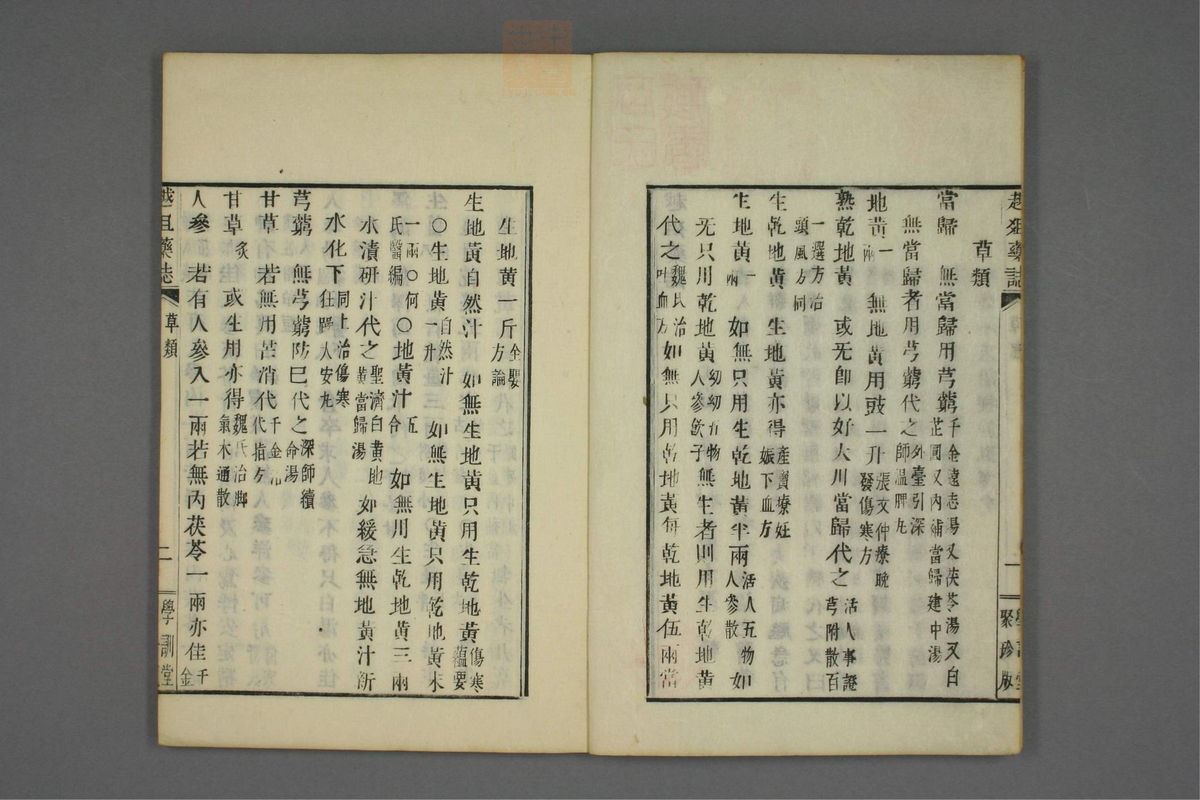 草類
當歸 無當歸用芎藭千金遠志湯又茯苓湯又白芷同又內補當歸建中湯
無當歸者用芎藭代之外臺引深師溫脾丸
地黃一兩 無地黃用豉一升張文仲療晩發傷寒方
熟乾地黃 或无卽以好大川當歸代之活人事證芎附散百
一選方治頭風方同
生乾地黃 生地黃亦得產寶療妊娠下血方
生地黃一兩 如無只用生乾地黃半兩活人五物人參散如
无只用乾地黃幼幼五物人參飮子無生者則用生乾地黃
代之魏氏治吐血方如無只用乾地黃每乾地黃伍兩當
生地黃一斤全嬰方論
生地黃自然汁 如無生地黃只用生乾地黃傷寒蘊要
〇生地黃自然汁一升 如無生地黃只用乾地黃末
一兩〇何氏醫編〇地黃汁五合 如無用生乾地黃三兩
水漬研汁代之聖濟白黃地黃當歸湯如緩急無地黃汁新
水化下同上治傷寒狂躁人安丸
芎藭 無芎藭防巳代之深師續命湯
甘草 若無用苦消代千金
甘草炙 或生用亦得魏氏治脚氣木通散
人參 若有人參入一兩若無內茯苓一兩亦佳千金
草類
二
學訓堂
一
聚珍版